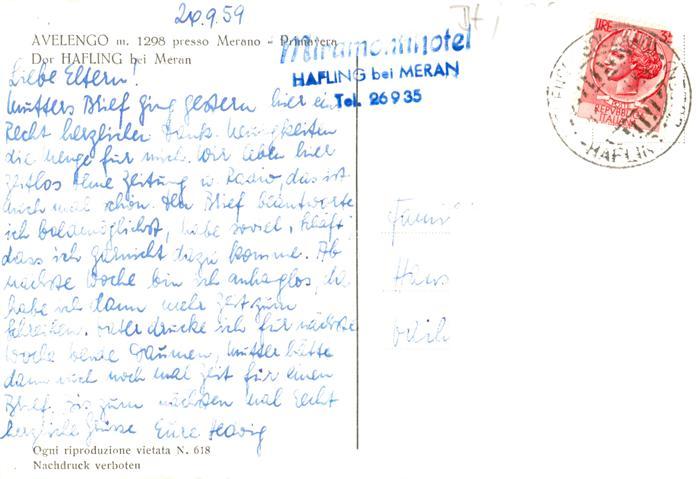 20.9.59
AVELENGO m. 1298 presso Merano - Primavera
Dor HAFLING bei Meran
Miramontihotel
HAFLING bei MERAN
Tel. 26935
LIRE
REPUBBLICA
ITALIANA
HAFLING
Liebe Eltern!
Mutters Brief ging gestern hier ein
Recht herzlichen Dank. Neuigkeiten
die Menge für mich. Wir leben hier
zeitlos ohne Zeitung u. Radio, das ist
auch mal schön. Den Brief beantworte
ich baldmöglichst, habe soviel
dass ich garnicht dazu komme. Ab
nächste Woche bin ich anhanglos, da
habe ich dann mehr Zeit zum
schreiben. Vater drücke ich für nächste
Woche beide Daumen, Mutter hätte
dann auch noch mal Zeit für einen
Brief. Bis zum nächsten mal recht
herzliche Grüsse Eure Hedwig
Ogni riproduzione vietata N. 618
Nachdruck verboten
Hans